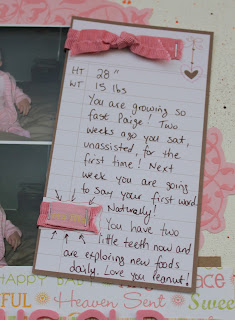 HT 28"
WT 15 lbs
You are growing so
fast Paige! Two
weeks ago you sat,
unassisted, for the
first time! Next
week you are going
to say your first word.
Naturally!
You have two
little teeth now and
are exploring new foods
daily. Love you peanut!
HAPPY BA
FUL Heaven Sent Swee